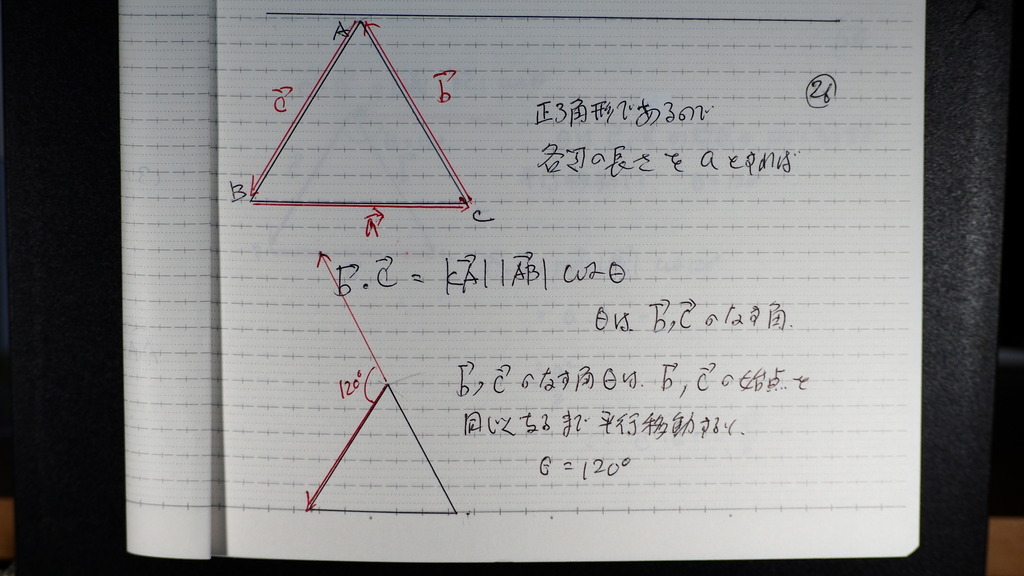 A
b⃗
c⃗
B
C
a⃗
26
正3角形であるので
各辺の長さを a とすれば
b⃗・c⃗ = |CA⃗| |AB⃗| cos θ
θは b⃗, c⃗ のなす角.
120°
b⃗, c⃗ のなす角 θは. b⃗, c⃗ の始点を
同じくなるまで 平行移動すると.
θ = 120°